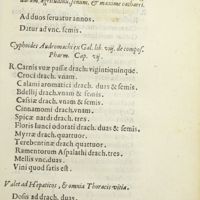 darum, ægritudini, senum, & maxime catharri.
Ad duos seruatur annos.
Ditur ad vnc. semis.
Cyphoides Andromachi ex Gal. lib. vij. de compos.
Pharm. Cap. vij.
R. Carnis vuæ passæ drach. viginti quinque.
Croci drach. vnam.
Calami aromatici drach. duas & semis.
Bdellij drach. vnam & semis.
Casiæ drach. vnam & semis.
Cinnamomi drach. vnam.
Spicæ nardi drach. tres.
Floris Iunci odorati drach. duas & semis.
Myrrhæ drach. quattuor.
Terebentinæ drach quattuor.
Ramentorum Aspalathi drach. tres.
Mellis vnc. duas.
Vini quod satis est.
Valet ad Hepaticos, & omnia Thoracis vitia.
Dosis ad drach. duas.